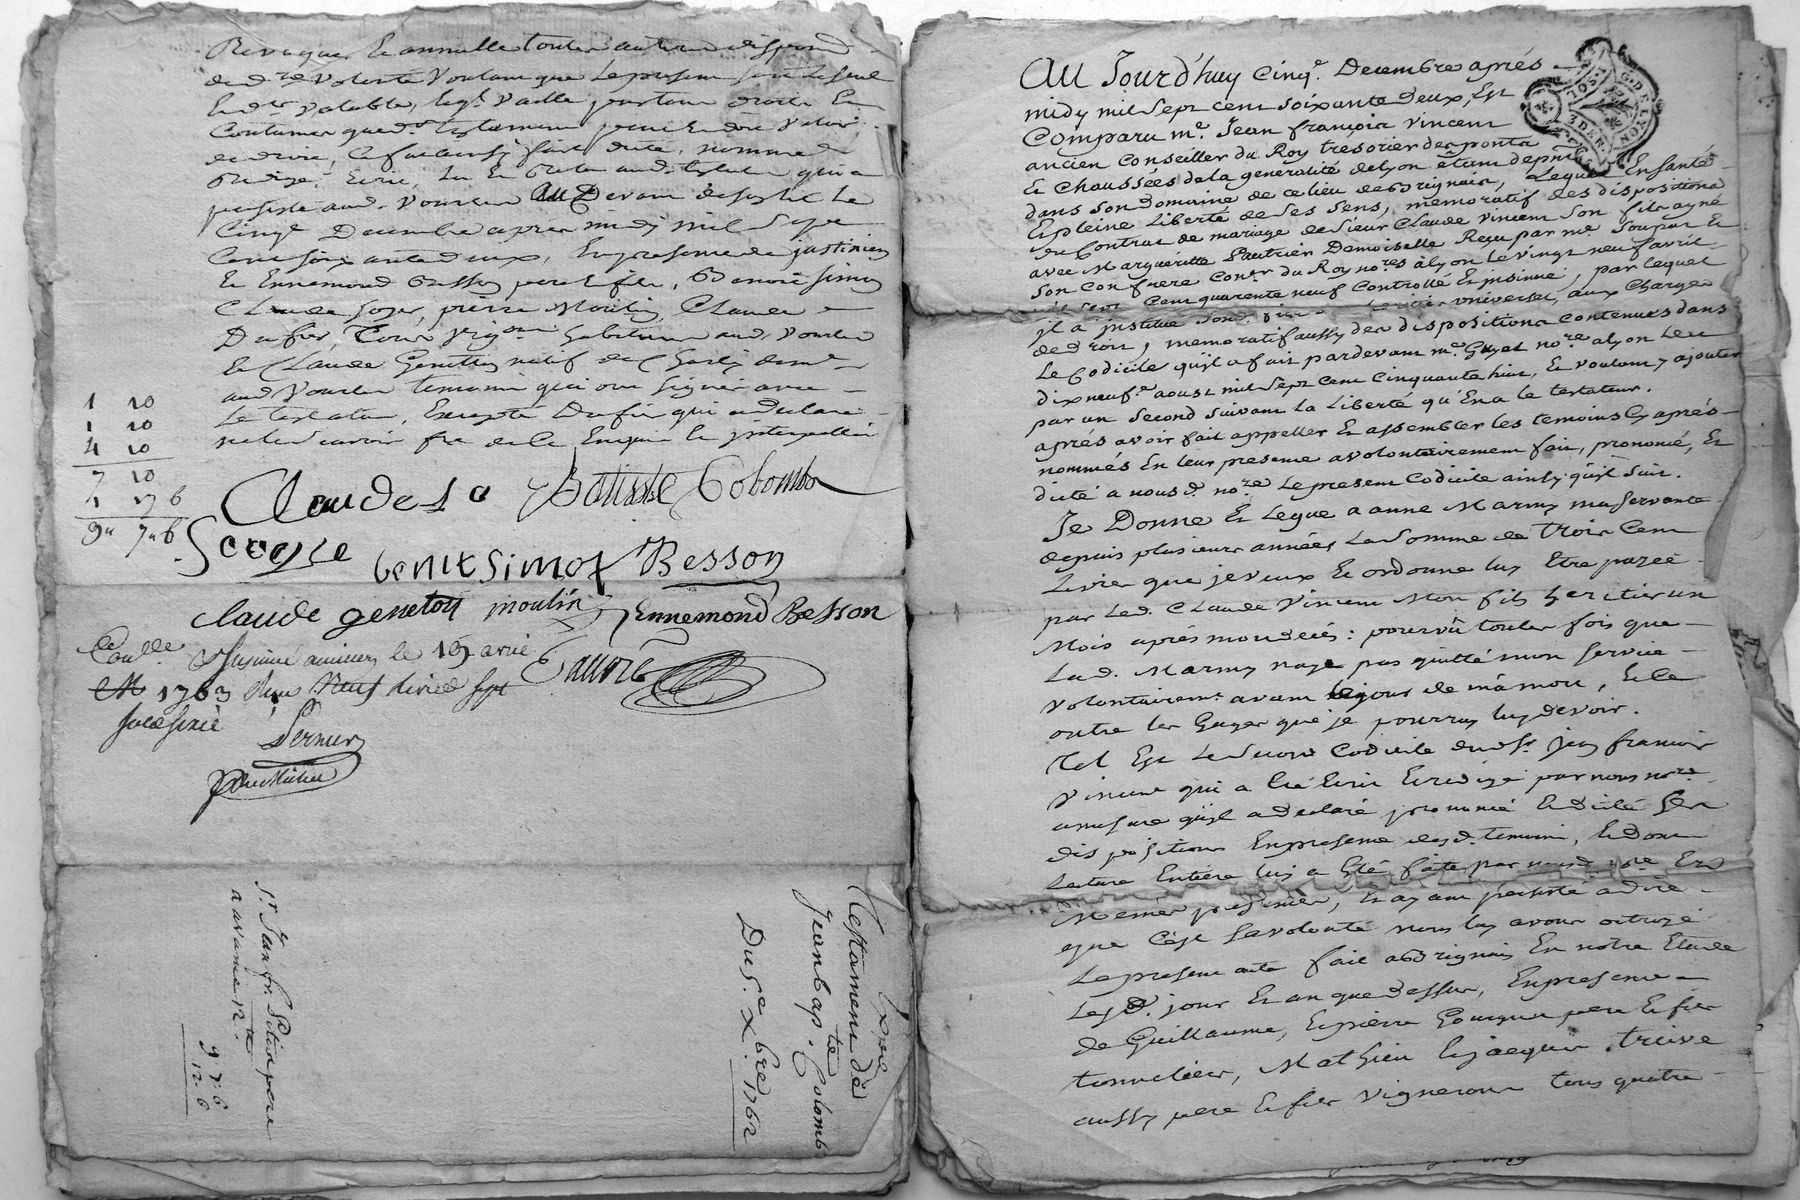 Revoque Et annulle toutes autres dispos
de d.re volonté voulant que le present soit le seul
Et d.er valable, lequel vaille par tous droits Et
Coutumes que d.er testament peut Et doit valoir
de droit, Ce fut ainsy fait, dicté, nommé
redigé, Ecrit, lu Et
persisté aud. Vourles Au devant
Cinq.e Decembre apres midy mil sept
Cent soixante deux, En presence de justinien
Et Ennemond Besson pere et fils, Benoit simon
Claude Goyer, pierre Moulin, Claude
Dufier, Tous vig.ons habitans aud. Vourles
Et Claude Genetton natif de Charly dem.t
aud Vourles temoins qui ont signé avec
Le testateur, Excepté Dufier qui a declaré
ne le scavoir fre de ce Enquis Et jnterpellé
1 10
1 10
4 10
7 10
1 17 6
9" 7"6
Claude Jo Batisste Colombo
Scoyse benitsimon J Besson
claude genetton moulin J Ennemond Besson
Con.lle Jnsinué a le 19 avril
1763 Reçu Neuf livres sept
sols six d
Pernier
Testament de
Jean bap.te Colomb
Du 5.e X.bre 1762
S.r Jean fr. pere
9 7: 6
12 - 6
Au Jourd'huy Cinq.e Decembre aprés
midy mil sept cent soixante deux, Est
Comparu m.e Jean françois Vincent
ancien Conseiller du Roy tresorier des ponts
Et Chaussées de la generalité de Lyon étant depnt
dans son domaine de ce lieu de Brignais, Lequel En santé
Et pleine Liberté de Ses Sens, memoratif des dispositions
du Contrat de mariage de Sieur Claude Vincent Son fils ayné
avec Margueritte Pautrier Demoiselle Reçu par m.e Soupat Et
Son Confrere Con.er du Roy no.res à Lyon Le vingt neuf avril
mil sept Cent quarente neuf Controllé Et jnsinué, par lequel
jl a jnstitué Son d. fils heritier universel, aux Charges
de droit, memoratif aussy des dispositions contenues dans
Le Codicile qu'il a fait pardevant m.e Guyot no.re a Lyon Le
dix neuf.e aoust mil sept cent Cinquante huit, Et voulant y ajouter
par un Second suivant La Liberté qu'En a le testateur.
aprés avoir fait appeller Et assembler les temoins cy aprés
nommés En leur presence a volontairement fait, prononcé, Et
dicté a nous d. no.re Le present Codicile ainsy qu'il suit.
Je Donne Et Legue a anne Marmy ma servante
depuis plusieurs années La somme de trois Cent
Livres que je veux Et ordonne luy Etre payée
par Led. Claude Vincent Mon fils heritier un
Mois aprés mon deces: pourvû toutes fois que
La d. Marmy naye pas quitté mon service
volontairem.t avant le jour de ma mort, Et ce
outre les Gages que je pourray luy devoir.
Tel Est Le second Codicile dud. S.r jean françois
Vincent qui a Eté Ecrit Et redigé par nous no.re
a mesure qu'il a declaré prononcé Et dicté Ses
dispositions En presence desd. temoins, Et dont
Lecture Entiére luy a Eté faite par nous d. no.re En
Mesme presence, Et ayant persisté a dire
que C'est Sa volonté nous luy avons octroyé
Le present acte fait a Brignais En notre Etude
Lesd. jour Et an que dessus, En presence
de Guillaume, Et pierre pere Et fils
tonnelier, Mathieu Et jacques trieve
aussy pere Et fils Vignerons tous quatre
G. DE LYON
1 SOL
3 DEN.